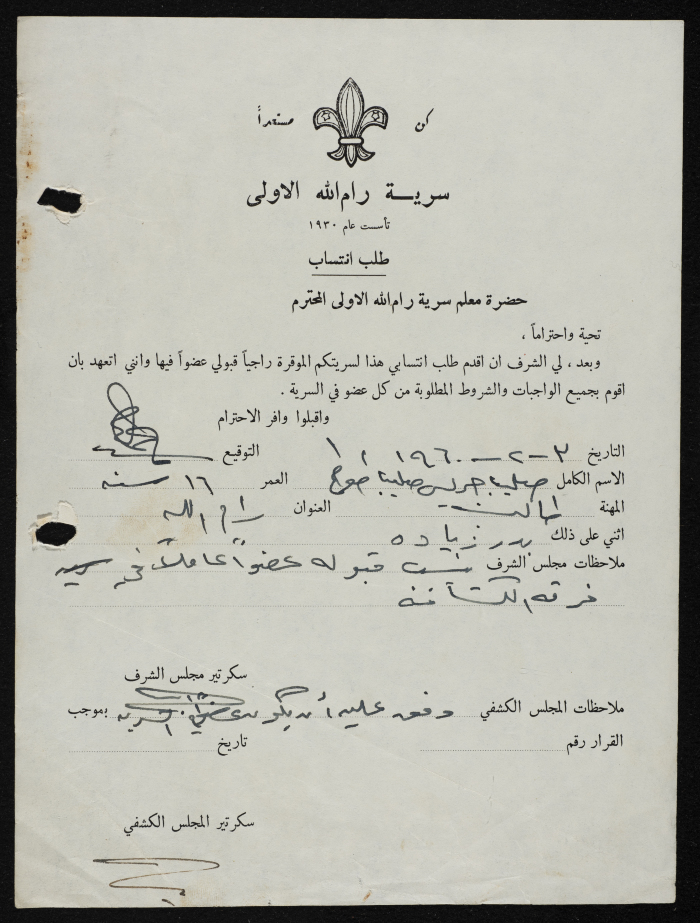 كن مستعداً
سرية رام الله الاولى
تأسست عام ١٩٣٠
طلب انتساب
حضرة معلم سرية رام الله الاولى المحترم
تحية واحتراماً ،
وبعد ، لي الشرف ان اقدم طلب انتسابي هذا لسريتكم الموقرة راجياً قبولي عضواً فيها وانني اتعهد بان
اقوم بجميع الواجبات والشروط المطلوبة من كل عضو في السرية .
واقبلوا وافر الاحترام
التاريخ ٣-٢-١٩٦٠ التوقيع
الاسم الكامل صليبا جريس صليبا العمر ١٦ سنه
المهنة طالب العنوان رام الله
اثني على ذلك بدر زياده
ملاحظات مجلس الشرف نسب قبوله عضواً عاملاً في
فرقه الكشافه
سكرتير مجلس الشرف
ملاحظات المجلس الكشفي وفق عليه أن يكون السريه بموجب
القرار رقم تاريخ
سكرتير المجلس الكشفي